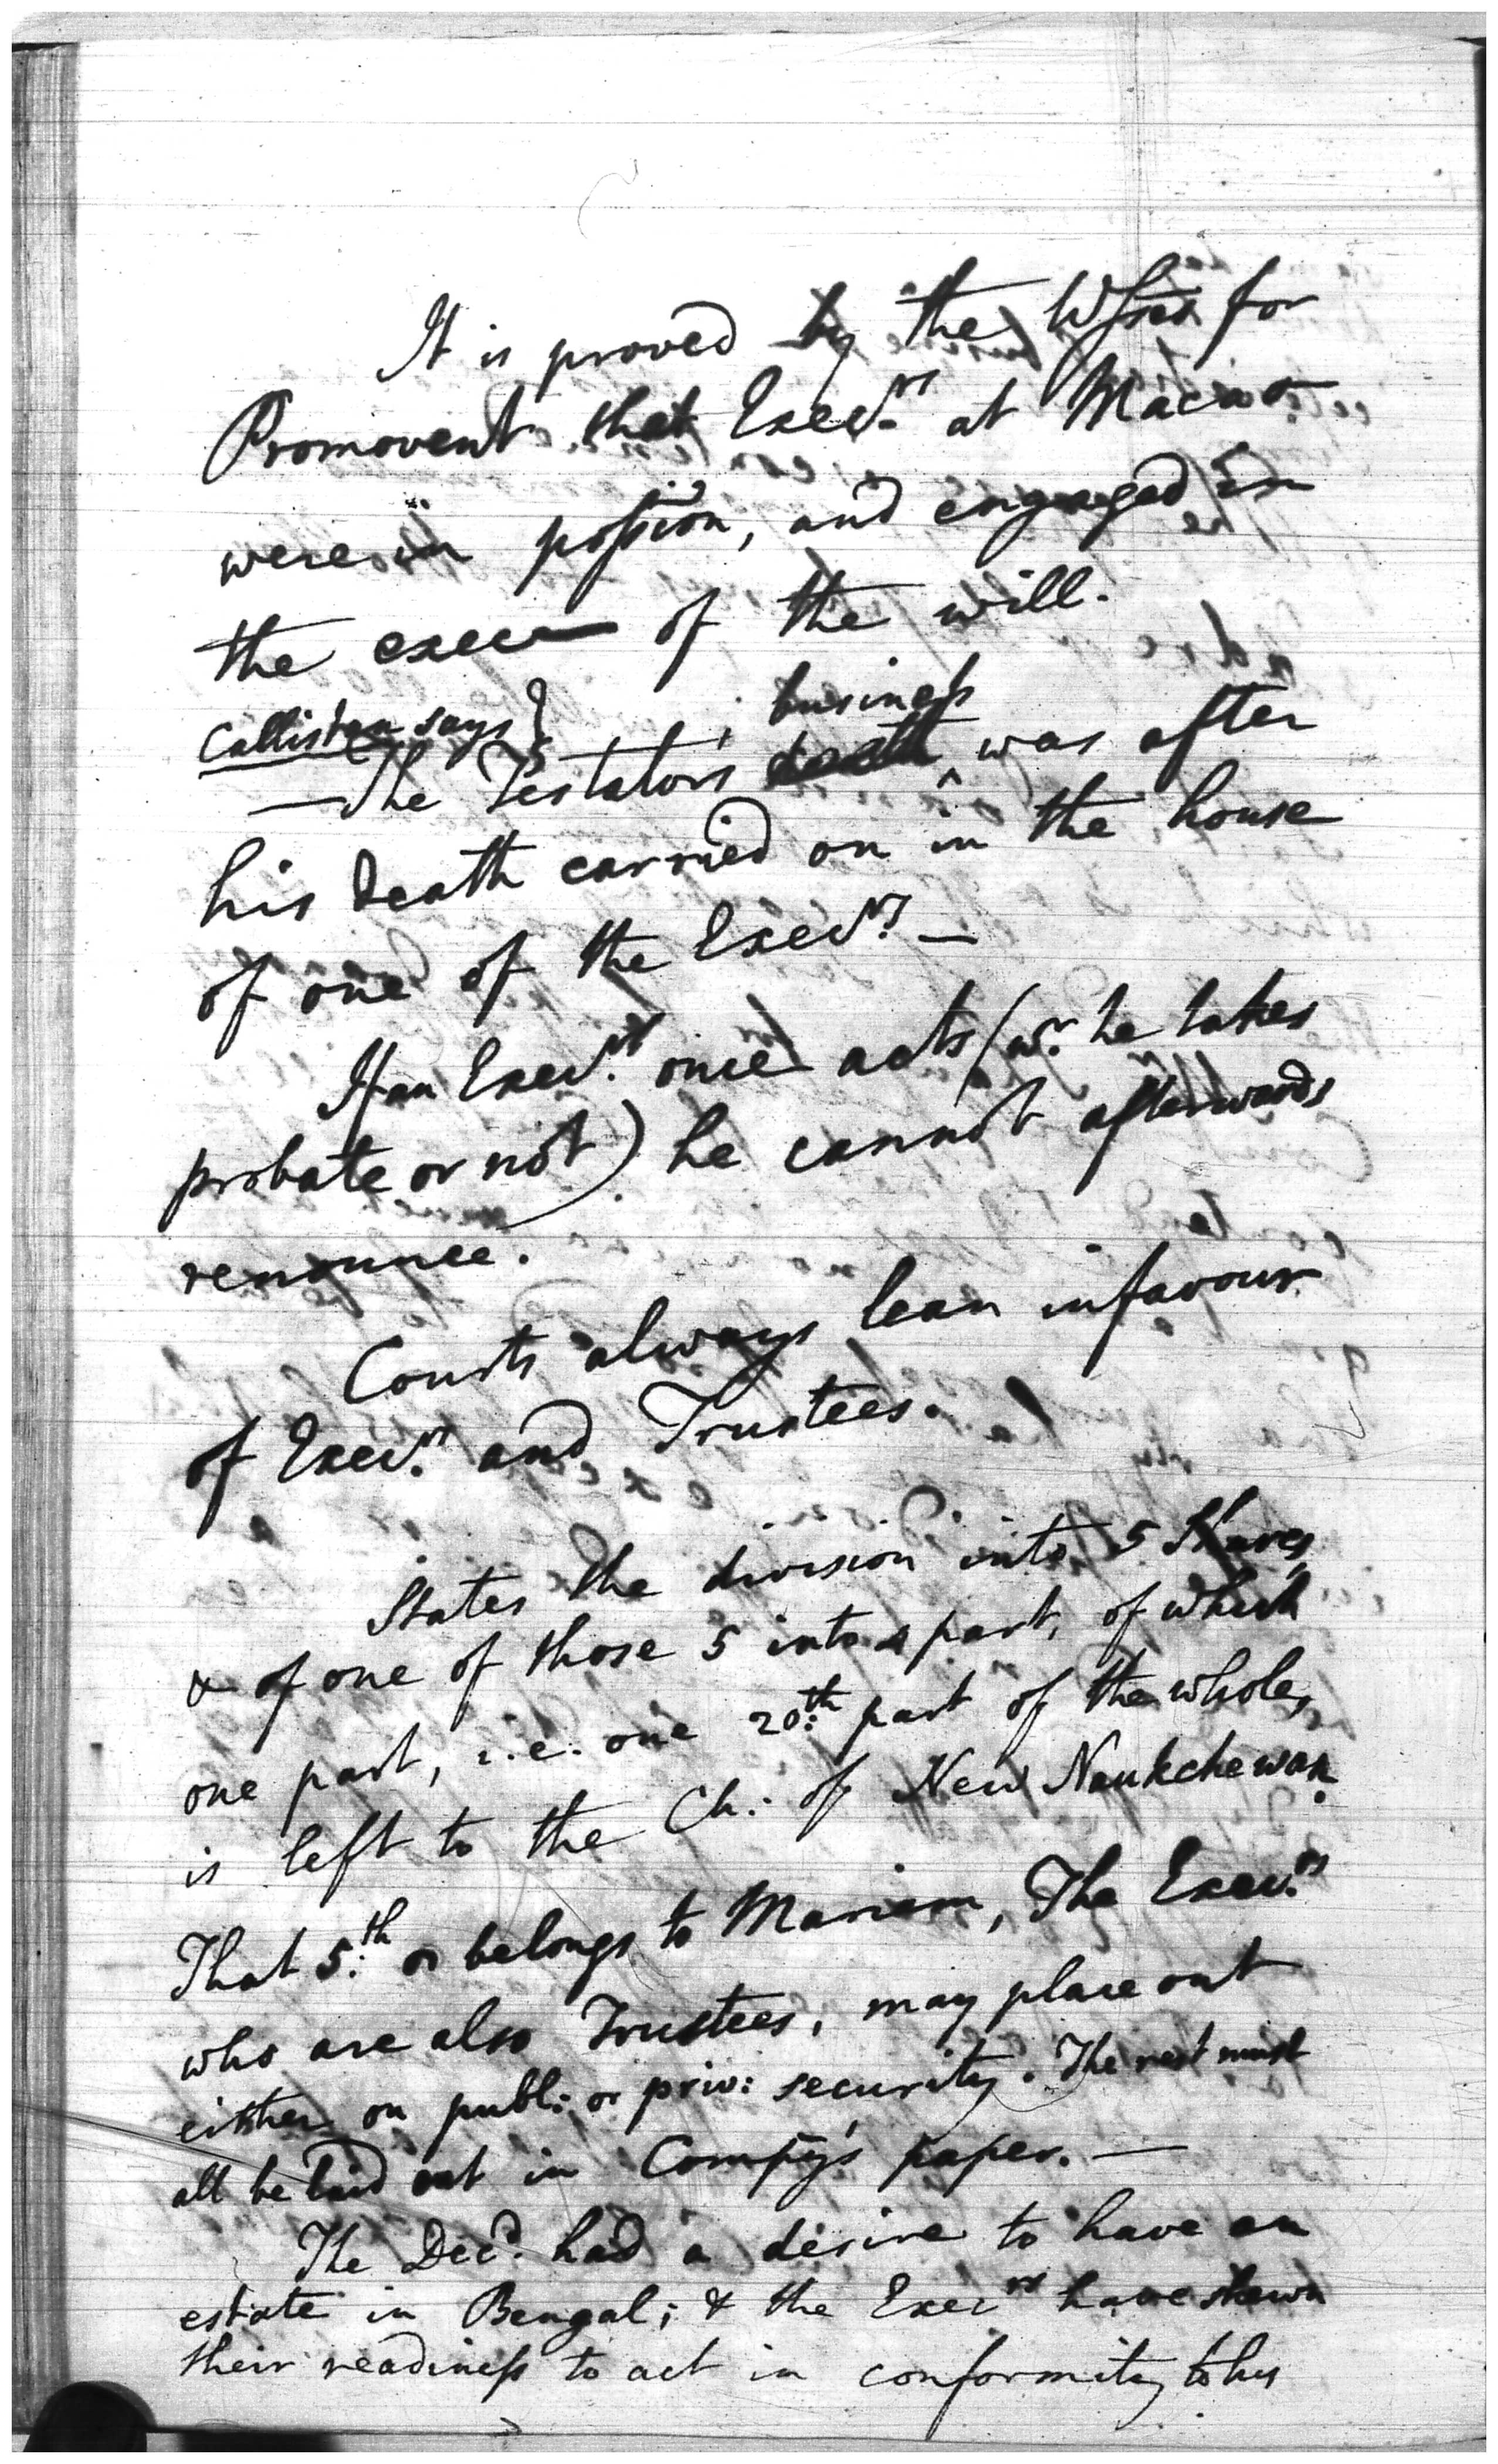 It is proved by the Wſses for
Promovent that Execrs. at Macao
were in poſsion, and engaged in
the exec— of the will.
Callistan says }
— The Testator's death ^ business was after
his death carried on in the house
of one of the Execrs. —
If an Execr. once acts (wr. he takes
probate or not) he cannot afterwards
renounce.
Courts always lean in favour
of Execrs. and Trustees.
States the division into 5 Shares,
& of one of those 5 into 4 part, of which
one part, i.e. one 20th. part of the whole,
is left to the Ch: of New Naukchewan.
That 5th. or belongs to Mariam, The Execrs.
who are also Trustees, may place out
either on publ: or priv: security. The rest must
all be laid out in Compy's paper. —
The Decd. had a desire to have an
estate in Bengal; & the Execrs have shewn
their readineſs to act in conformity to his